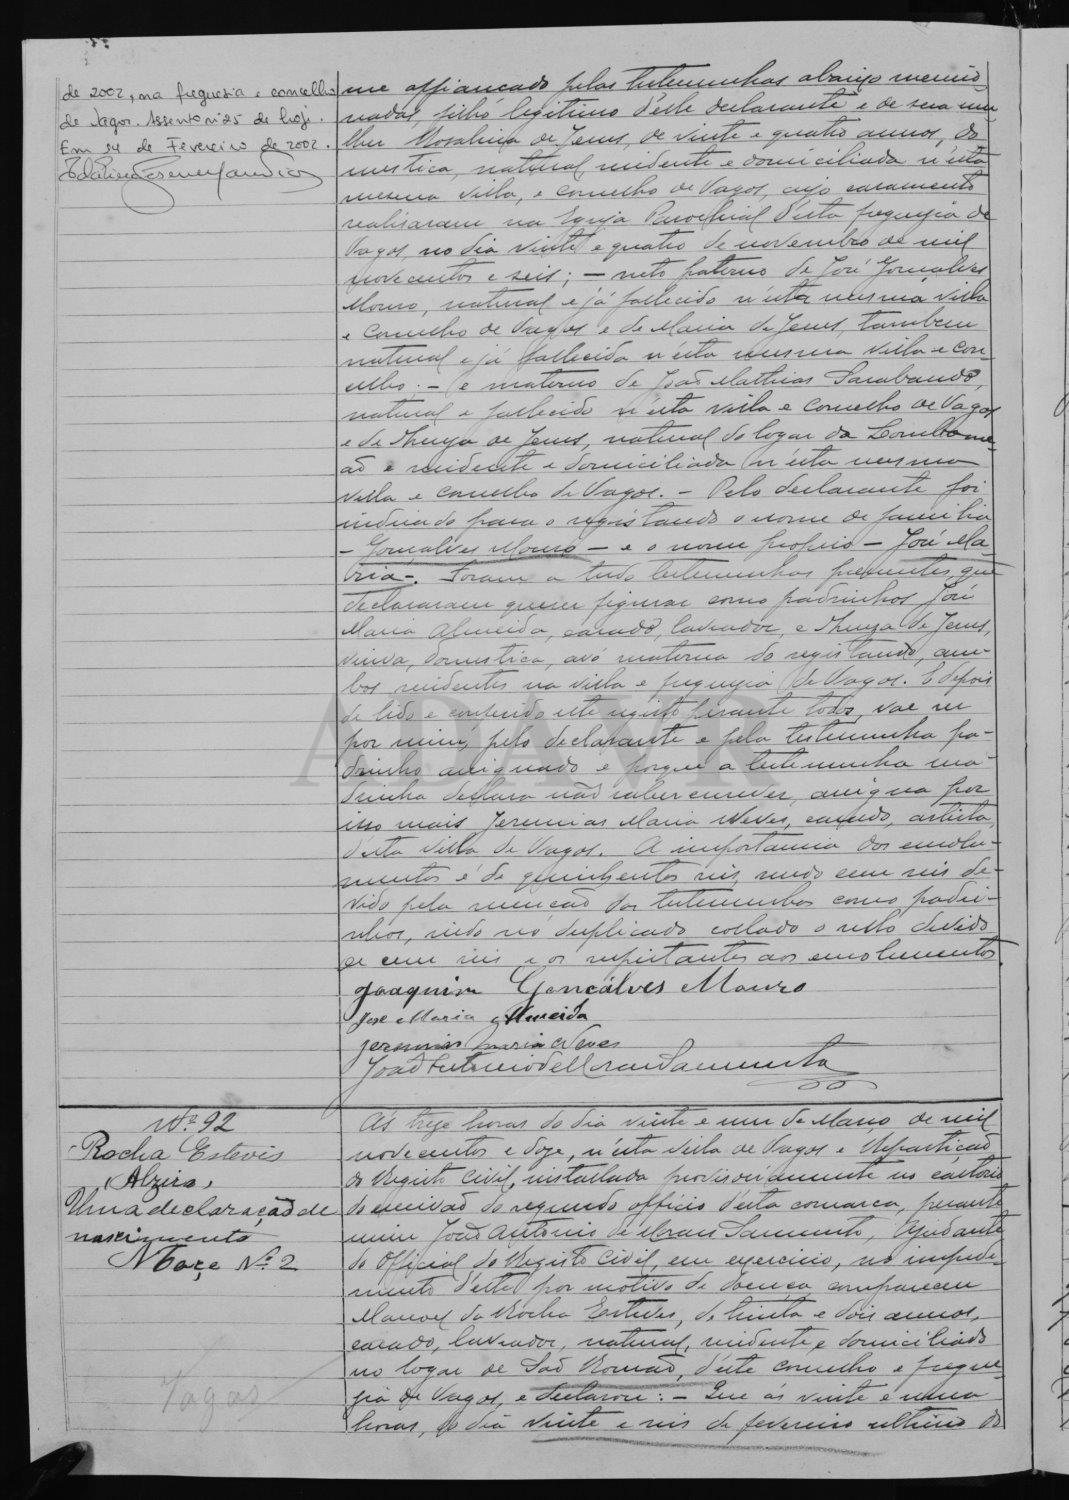 de 2002, na freguesia e concelho
de Vagos. Assento nº 25 de hoje.
Em 14 de Fevereiro de 2002.
me affiancado pelas testemunhas abaixo mencio-
nadas, filho legitimo d'elle declarante e de sua mu-
lher Rosalina de Jesus, de vinte e quatro annos, do-
mestica, natural, residente e domiciliada n'esta
mesma villa, e concelho de Vagos, cujo casamento
realisaram na Egreja Parochial d'esta freguesia de
Vagos no dia vinte e quatro de novembro de mil
novecentos e seis; – neto paterno de José Gonçalves
Mouro, natural e já fallecido n'esta mesma villa
e concelho de Vagos e de Maria de Jesus, tambem
natural e já fallecida n'esta mesma villa e con-
celho; – e materno de João Mathias Sarabando,
natural e fallecido n'esta villa e concelho de Vagos
e de Thereza de Jesus, natural do logar da Lombome-
ão e residente e domiciliada n'esta mesma
villa e concelho de Vagos. – Pelo declarante foi
indicado para o registando o nome de familia
– Gonçalves Mouro – e o nome proprio – José Ma-
ria –. Foram a tudo testemunhas presentes, que
declararam querer figurar como padrinhos José
Maria Almeida, casado, lavrador, e Thereza de Jesus,
viuva, domestica, avó materna do registando, am-
bos residentes na villa e freguesia de Vagos. E depois
de lido e conferido este registo perante todos, vae ser
por mim, pelo declarante e pela testemunha pa-
drinho assignado e porque a testemunha ma-
drinha declara não saber escrever, assigna por
isso mais Jeremias Maria Neves, casado, artista,
d'esta villa de Vagos. A importancia dos emolu-
mentos é de quinhentos reis, sendo cem reis de-
vido pela menção das testemunhas como padri-
nhos, indo no duplicado collado o sello devido
de cem reis e os respeitantes aos emolumentos.
Joaquim Gonçalves Mouro
José Maria Almeida
Jeremias Maria Neves
João Antonio de Moraes Sarmento
Nº 92
Rocha Esteves
(Alzira)
Uma declaração de
nascimento
Maço Nº 2
Vagos
Ás treze horas do dia vinte e um de Março de mil
novecentos e doze, n'esta villa de Vagos e Repartição
do Registo Civil, installada provisoriamente no cartorio
do escrivão do segundo officio d'esta comarca, perante
mim João Antonio de Moraes Sarmento, Ajudante
do Official do Registo Civil, em exercicio, no impedi-
mento d'este por motivo de doença compareceu
Manoel da Rocha Esteves, de trinta e dois annos,
casado, lavrador, natural, residente e domiciliado
no logar de São Romão, d'este concelho e fregue-
sia de Vagos, e declarou: – Que ás vinte e uma
horas, do dia vinte e seis de fevereiro ultimo do
ADAVR